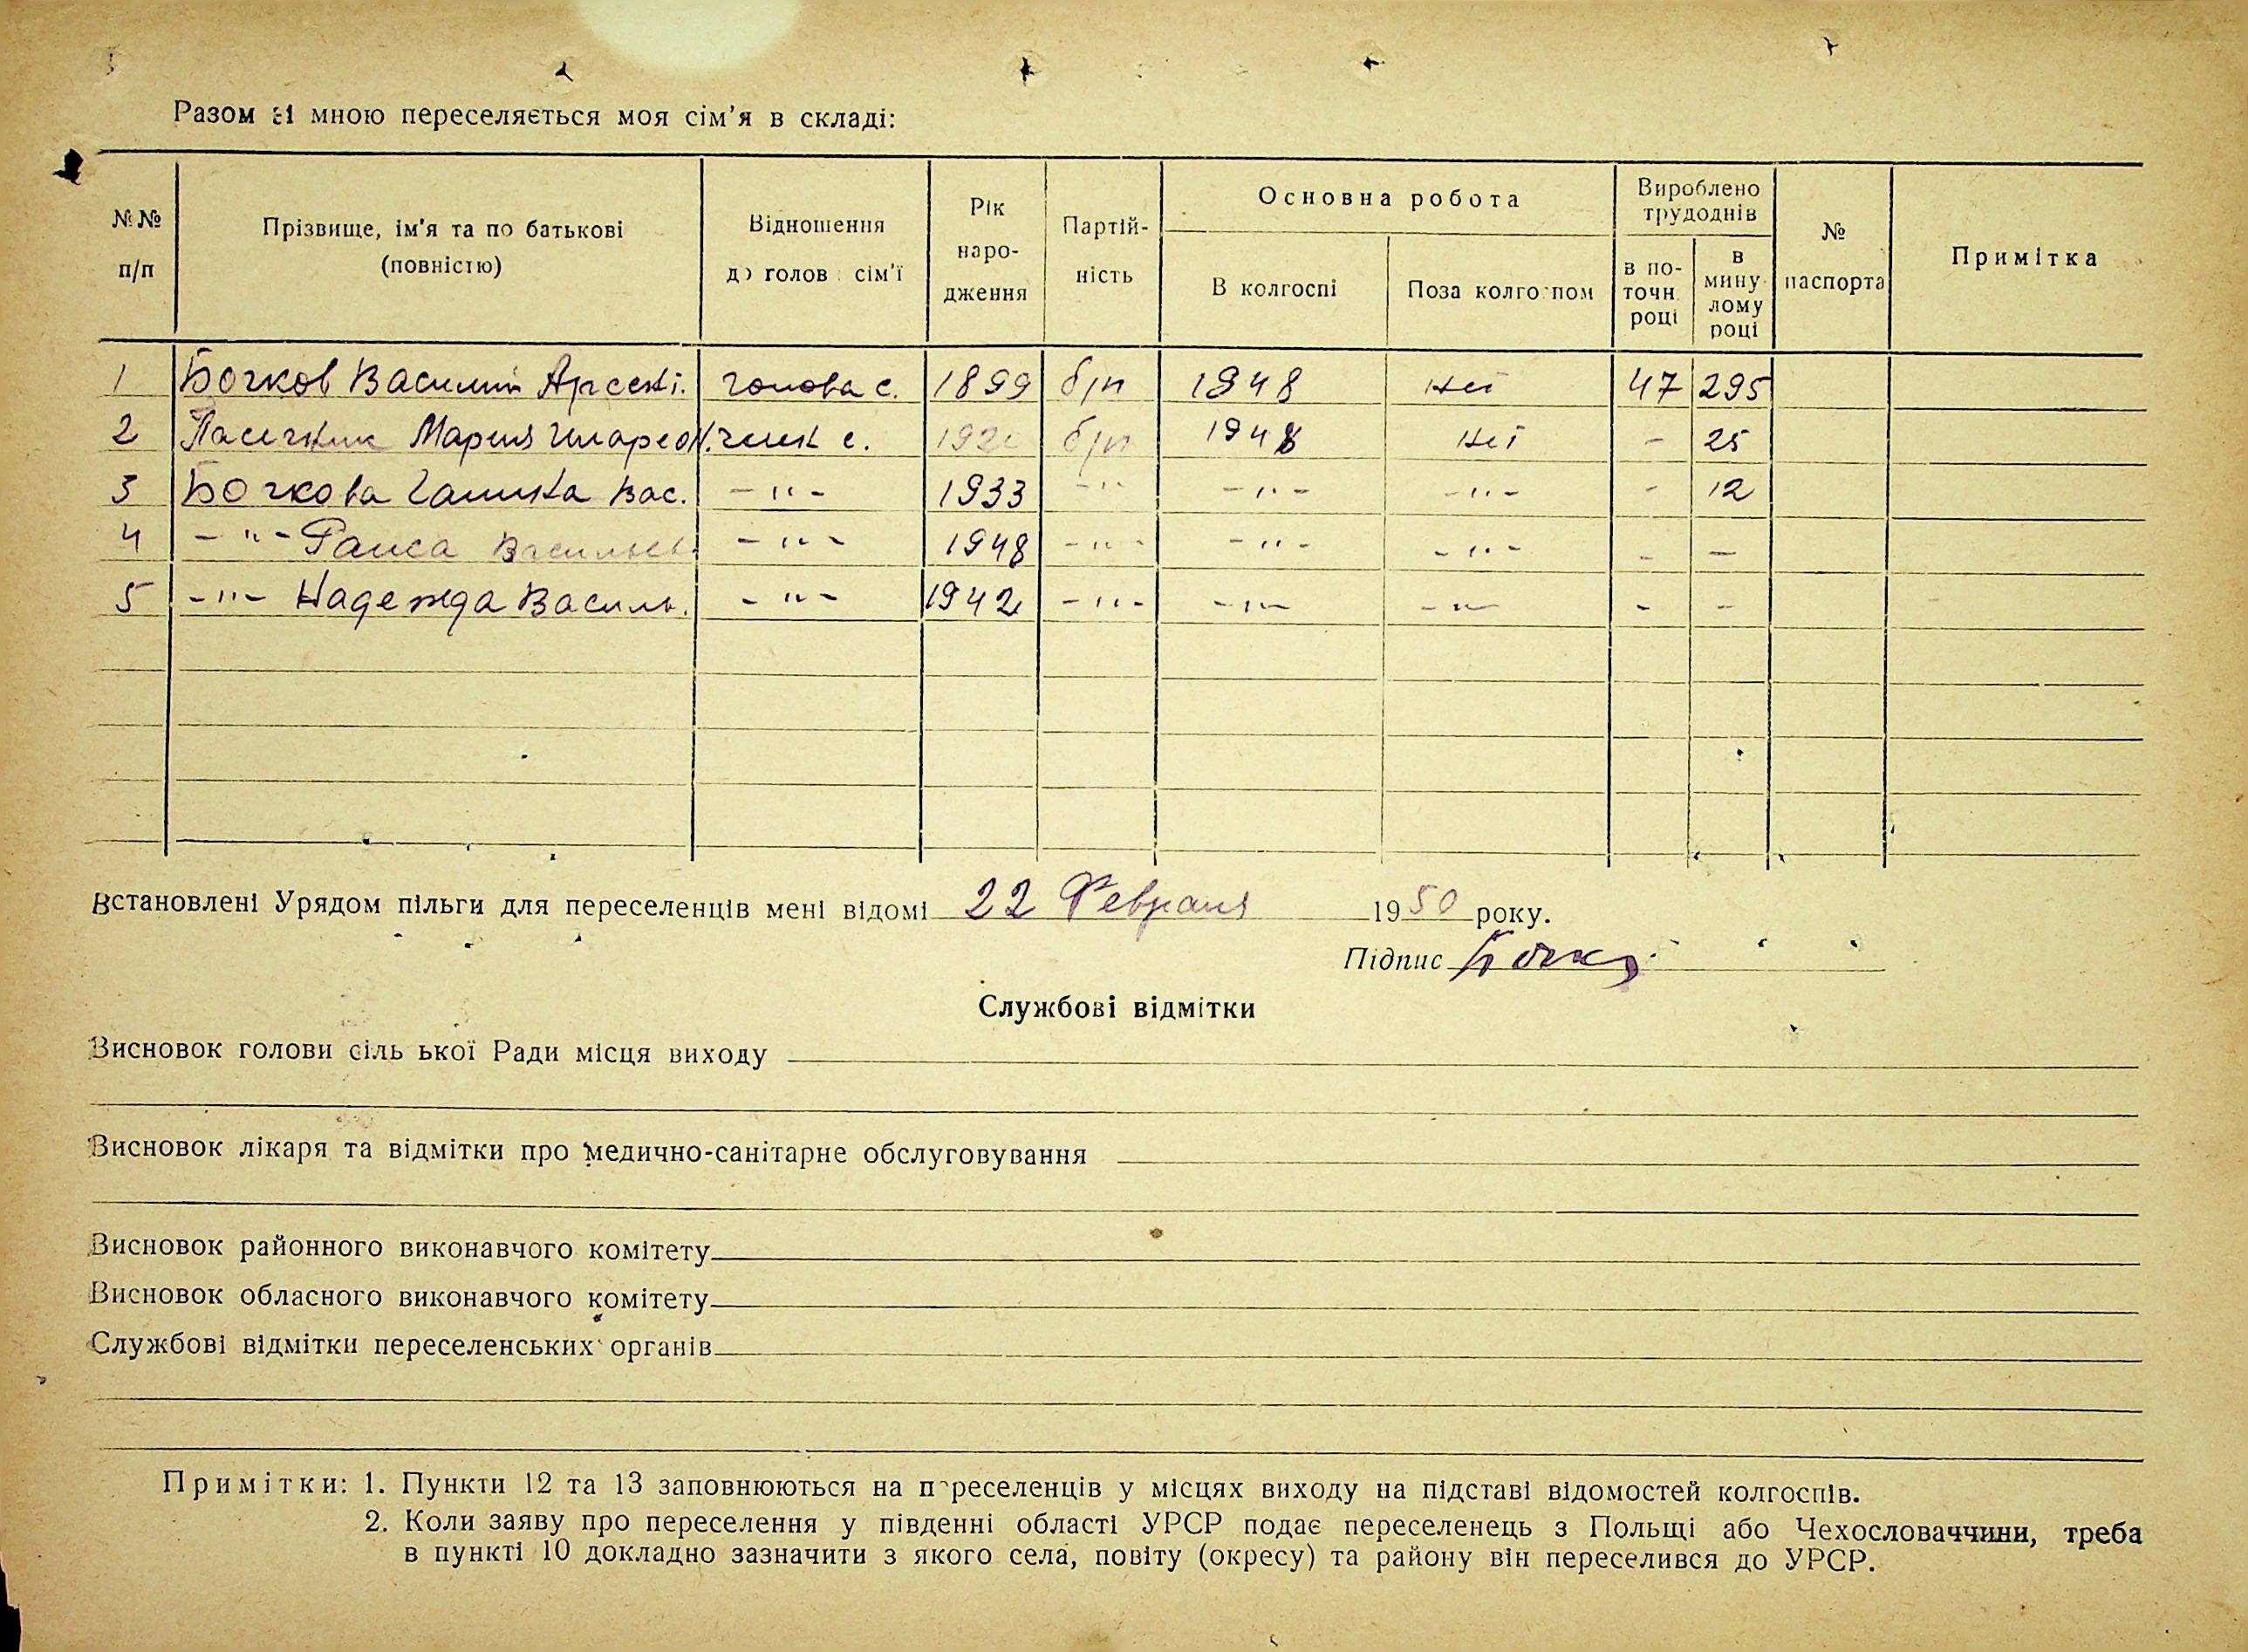 Разом зі мною переселяється моя сім'я в складі:
№№ п/п
Прізвище, ім'я та по батькові (повністю)
Відношення до голови сім'ї
Рік народження
Партійність
Основна робота
В колгоспі
Поза колгоспом
Вироблено трудоднів
в поточн. році
в минулому році
№ паспорта
Примітка
1 Бочков Василий Арсені. голова с. 1899 б/п 1948 неї 47 295
2 Пасечник Мария Иларион. член с. 192 б/п 1948 неї - 25
3 Бочкова Галина Вас. -"- 1933 -"- -"- -"- - 12
4 -"- Раиса Васильев. -"- 1948 -"- -"- -"- - -
5 -"- Надежда Василь. -"- 1942 -"- -"- -"- - -
Встановлені Урядом пільги для переселенців мені відомі 22 Февраля 1950 року.
Підпис
Службові відмітки
Висновок голови сільської Ради місця виходу
Висновок лікаря та відмітки про медично-санітарне обслуговування
Висновок районного виконавчого комітету
Висновок обласного виконавчого комітету
Службові відмітки переселенських органів
Примітки: 1. Пункти 12 та 13 заповнюються на переселенців у місцях виходу на підставі відомостей колгоспів.
2. Коли заяву про переселення у південні області УРСР подає переселенець з Польщі або Чехословаччини, треба
в пункті 10 докладно зазначити з якого села, повіту (окресу) та району він переселився до УРСР.